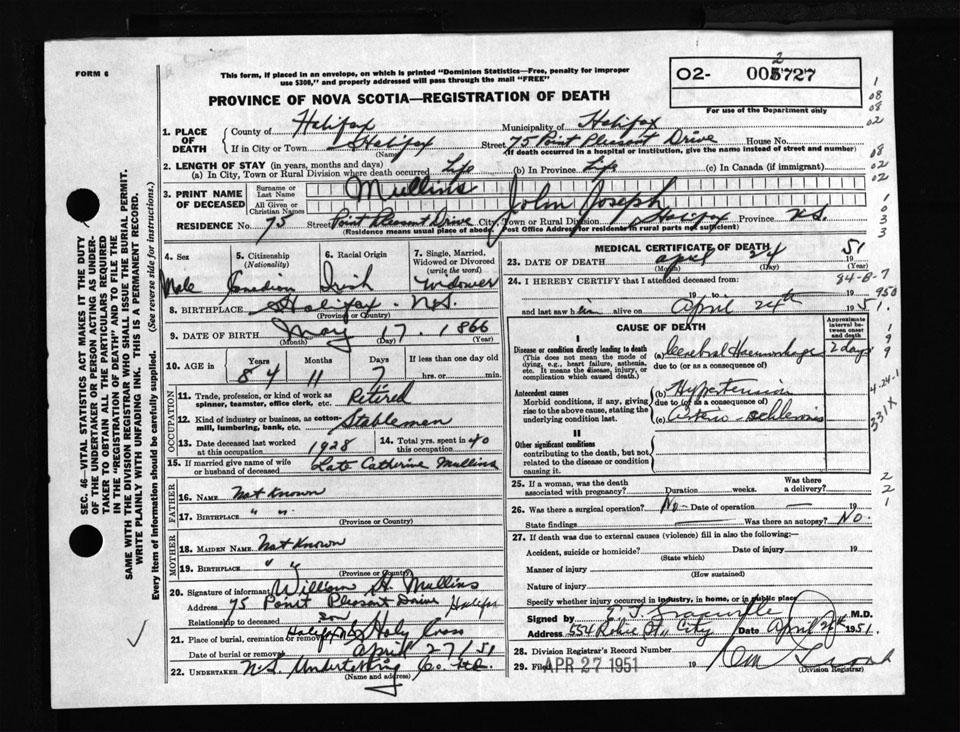 FORM 6
This form, if placed in an envelope, on which is printed "Dominion Statistics—Free, penalty for improper
use $300," and properly addressed will pass through the mail "FREE"
PROVINCE OF NOVA SCOTIA—REGISTRATION OF DEATH
O2- 727
For use of the Department only
1. PLACE OF DEATH
County of Halifax Municipality of Halifax
If in City or Town Halifax Street 75 Point Pleasant Drive House No.
(Name) (If death occurred in a hospital or institution, give the name instead of street and number)
2. LENGTH OF STAY (in years, months and days)
(a) In City, Town or Rural Division where death occurred Life (b) In Province Life (c) In Canada (if immigrant)
3. PRINT NAME OF DECEASED
Surname or Last Name Mullins
All Given or Christian Names John Joseph
RESIDENCE No. 75 Street Point Pleasant Drive City, Town or Rural Division Halifax Province N.S.
(Residence means usual place of abode. Post Office Address for residents in rural parts not sufficient)
4. Sex Male
5. Citizenship (Nationality) Canadian
6. Racial Origin Irish
7. Single, Married, Widowed or Divorced (write the word) Widower
8. BIRTHPLACE Halifax - N.S.
(Province or Country)
9. DATE OF BIRTH May 17. 1866
(Month) (Day) (Year)
10. AGE in Years 84 Months 11 Days 7 If less than one day old hrs. or min.
OCCUPATION
11. Trade, profession, or kind of work as spinner, teamster, office clerk, etc. Retired
12. Kind of industry or business, as cotton-mill, lumbering, bank, etc. Stablemen
13. Date deceased last worked at this occupation 1928
14. Total yrs. spent in this occupation 40
15. If married give name of wife or husband of deceased Late Catherine Mullins
FATHER
16. NAME Not Known
17. BIRTHPLACE " "
(Province or Country)
MOTHER
18. MAIDEN NAME Not Known
19. BIRTHPLACE " "
(Province or Country)
20. Signature of informant William H. Mullins
Address 75 Point Pleasant Drive Halifax
Relationship to deceased son
21. Place of burial, cremation or removal Halifax N.S. Holy Cross
Date of burial or removal April 27/51
22. UNDERTAKER N.S. Undertaking Co. Ltd.
(Name and address)
MEDICAL CERTIFICATE OF DEATH
23. DATE OF DEATH April 24 51
(Month) (Day) (Year)
24. I HEREBY CERTIFY that I attended deceased from:
19 to 1950
and last saw him alive on April 24th 1951.
CAUSE OF DEATH
Approximate interval between onset and death
I
Disease or condition directly leading to death (a) Cerebral Haemorrhage 2 days
(This does not mean the mode of dying, e.g., heart failure, asthenia, etc. It means the disease, injury, or complication which caused death.)
due to (or as a consequence of)
Antecedent causes (b) Hypertension
Morbid conditions, if any, giving rise to the above cause, stating the underlying condition last.
due to (or as a consequence of)
(c) Arterio Sclerosis
II
Other significant conditions contributing to the death, but not related to the disease or condition causing it.
25. If a woman, was the death associated with pregnancy? Duration weeks. Was there a delivery?
26. Was there a surgical operation? No - Date of operation — 19
State findings — Was there an autopsy? No.
27. If death was due to external causes (violence) fill in also the following:—
Accident, suicide or homicide? Date of injury 19
(State which)
Manner of injury
(How sustained)
Nature of injury
Specify whether injury occurred in industry, in home, or in public place
Signed by M.D.
Address 554 Robie St., City Date April 1951.
28. Division Registrar's Record Number
29. Filed APR 27 1951 19
(Division Registrar)
SEC. 46—VITAL STATISTICS ACT MAKES IT THE DUTY
OF THE UNDERTAKER OR PERSON ACTING AS UNDER-
TAKER TO OBTAIN ALL THE PARTICULARS REQUIRED
IN THE "REGISTRATION OF DEATH" AND TO FILE THE
SAME WITH THE DIVISION REGISTRAR WHO SHALL ISSUE THE BURIAL PERMIT.
WRITE PLAINLY WITH UNFADING INK. THIS IS A PERMANENT RECORD.
Every item of information should be carefully supplied. (See reverse side for instructions.)
1
08
08
02
08
02
02
1
0
3
3
84-8-7
1
9
9
4-24-1
331X
2
2
1